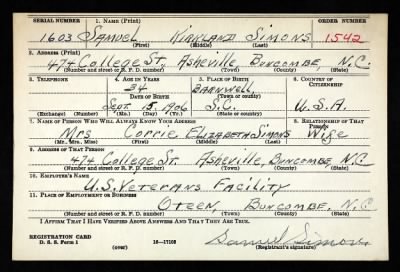 SERIAL NUMBER 1. NAME (Print) ORDER NUMBER
1603 SAMUEL KIRKLAND SIMONS 1542
(First) (Middle) (Last)
2. ADDRESS (Print)
474 COLLEGE ST, ASHEVILLE, BUNCOMBE, N.C.
(Number and street or R. F. D. number) (Town) (County) (State)
3. TELEPHONE 4. AGE IN YEARS 5. PLACE OF BIRTH 6. COUNTRY OF CITIZENSHIP
34 BARNWELL,
DATE OF BIRTH (Town or county)
SEPT. 15, 1906 S.C. U.S.A.
(Exchange) (Number) (Mo.) (Day) (Yr.) (State or country)
7. NAME OF PERSON WHO WILL ALWAYS KNOW YOUR ADDRESS 8. RELATIONSHIP OF THAT PERSON
MRS CORRIE ELIZABETH SIMONS WIFE
(Mr., Mrs., Miss) (First) (Middle) (Last)
9. ADDRESS OF THAT PERSON
474 COLLEGE ST. ASHEVILLE, BUNCOMBE, N.C
(Number and street or R. F. D. number) (Town) (County) (State)
10. EMPLOYER'S NAME
U.S. VETERANS FACILITY
11. PLACE OF EMPLOYMENT OR BUSINESS
OTEEN, BUNCOMBE, N.C
(Number and street or R. F. D. number) (Town) (County) (State)
I AFFIRM THAT I HAVE VERIFIED ABOVE ANSWERS AND THAT THEY ARE TRUE.
REGISTRATION CARD
D. S. S. Form 1 16—17105 Samuel Simons
(over) (Registrant's signature)